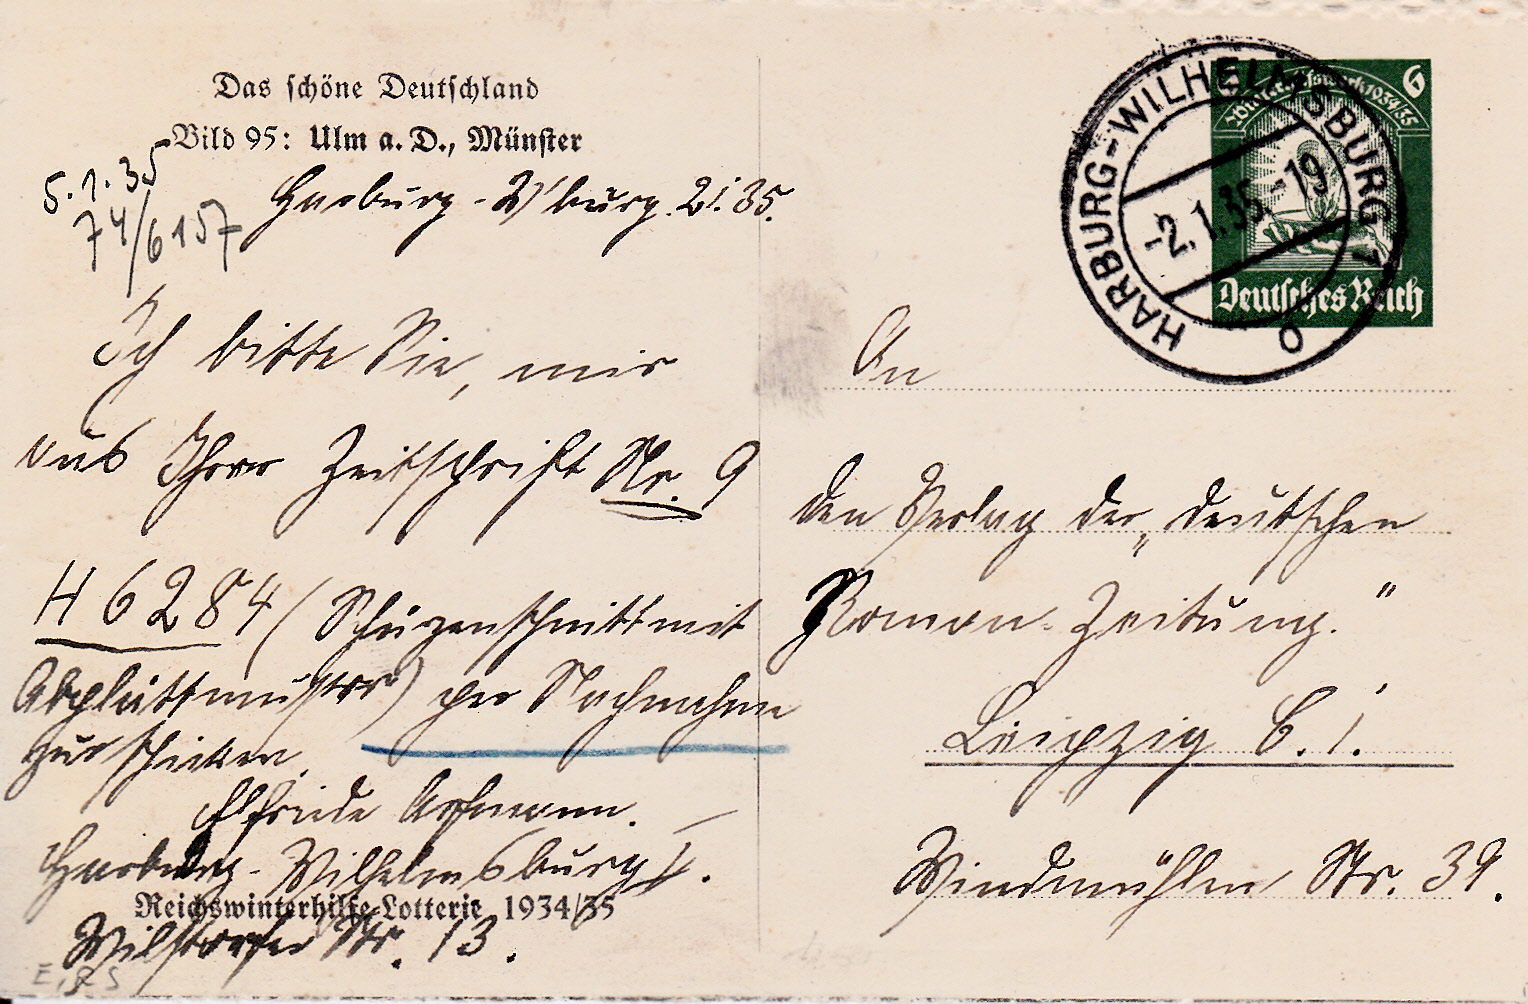 Das schöne Deutschland
Bild 95: Ulm a. D., Münster
5.1.35
74/6157
Harburg - W'burg. 2.1.35.
Ich bitte Sie, mir
aus Ihrer Zeitschrift Nr. 9
H 6284 (Schürzenschnitt mit
Abplättmuster) per Nachnahme
zu schicken.
Elfriede
Harburg-Wilhelmsburg 1.
Reichswinterhilfe-Lotterie 1934/35
Wilstorfer Str. 13.
HARBURG-WILHELMSBURG 1
-2.1.35.-19
o
Winterhilfswerk 1934/35
6
Deutsches Reich
An
den Verlag der „Deutschen
Roman-Zeitung."
Leipzig C. 1.
Windmühlen Str. 39.